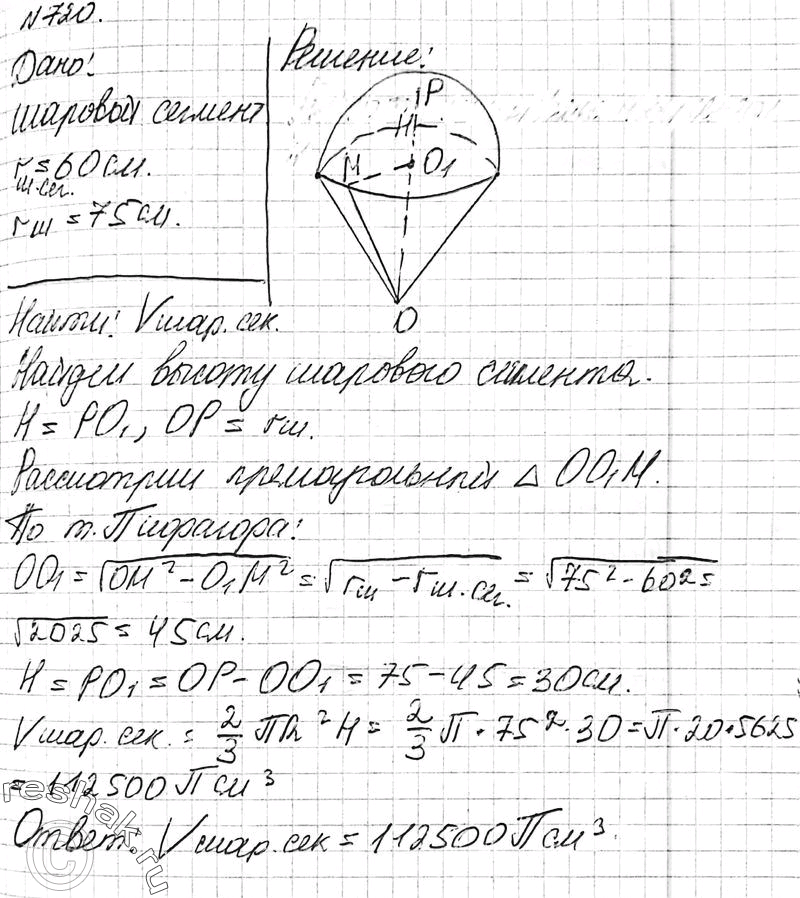 №720.
Дано:
шаровой сегмент
r ш.сег. = 60 см.
rш = 75 см.
Найти: Vшар.сек.
Решение:
P
H
M
O₁
O
Найдем высоту шарового сегмента.
H = PO₁, OP = rш.
Рассмотрим прямоугольный △ OO₁M.
По т. Пифагора:
OO₁ = √OM² - O₁M² = √rш - rш.сег. = √75² - 60² =
√2025 = 45 см.
H = PO₁ = OP - OO₁ = 75 - 45 = 30 см.
Vшар.сек. = 2/3 ПR²H = 2/3 П · 75² · 30 = П · 20 · 5625
= 112500 П см³
Ответ. Vшар.сек = 112500 П см³.
reshak.ru
©